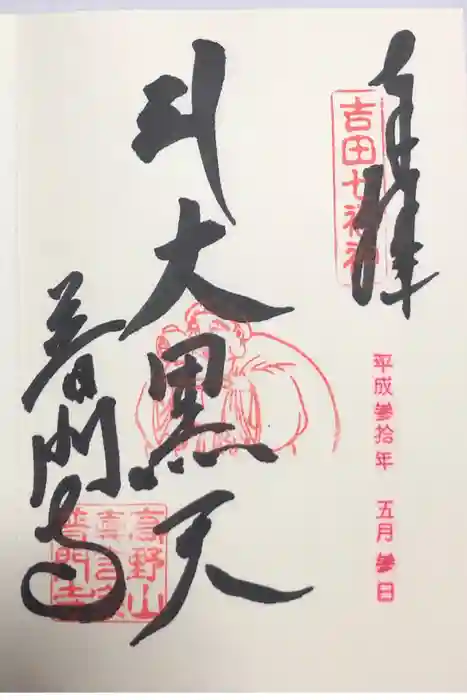 奉拝
吉田七福神
平成参拾年 五月参日
大黒天
普門寺
高野山
真言宗
普門寺